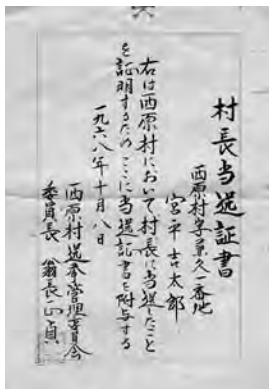 村長当選証書
西原村字兼久一番地
宮平吉太郎
右は西原村において村長に当選したこと
を証明するためここに当選証書を附与する
一九六八年十月八日
西原村選挙管理委員会
委員長 翁長正貞